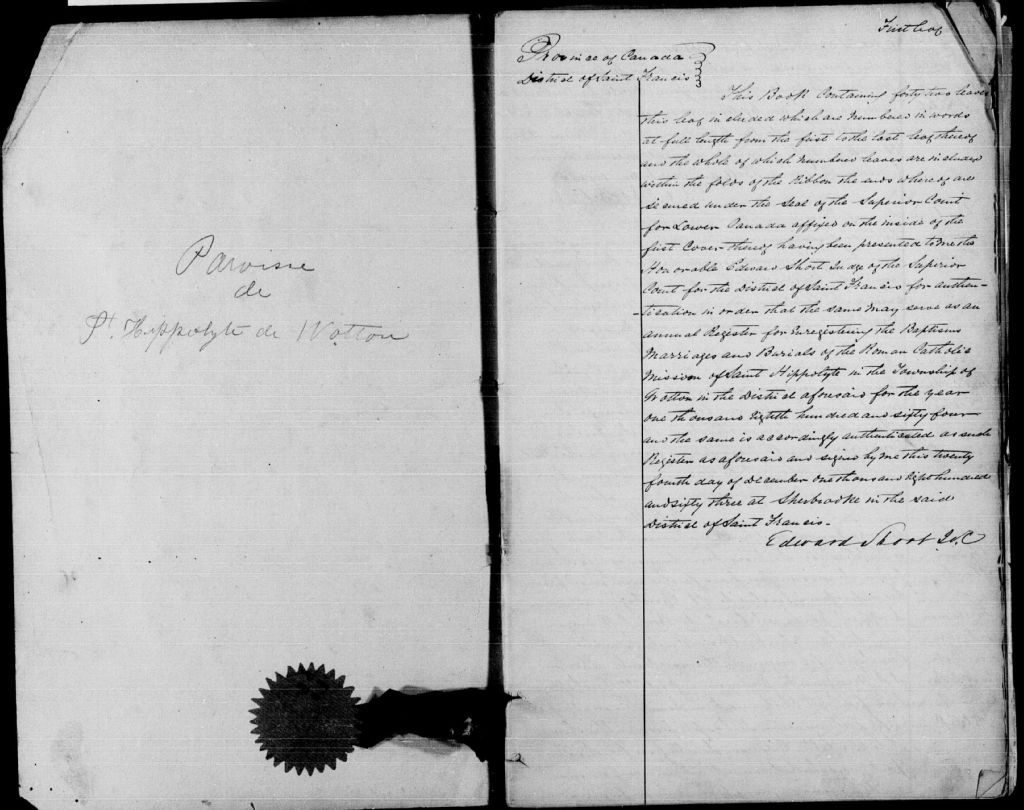 Paroisse
de
St. Hippolyte de Wotton
First leaf
Province of Canada
District of Saint Francis
This Book Containing forty two leaves
this leaf included which are numbered in words
at full length from the first to the last leaf thereof
and the whole of which numbered leaves are included
within the folds of the Ribbon the ends whereof are
secured under the Seal of the Superior Court
for Lower Canada affixed on the inside of the
first Cover thereof having been presented to me the
Honorable Edward Short Judge of the Superior
Court for the District of Saint Francis for authen-
tication in order that the same may serve as an
annual Register for Enregistering the Baptisms
Marriages and Burials of the Roman Catholic
Mission of Saint Hippolyte in the Township of
Wotton in the District aforesaid for the year
one thousand Eighth hundred and sixty four
and the same is accordingly authenticated as such
Register as aforesaid and signed by me this twenty
fourth day of December one thousand Eight hundred
and sixty three at Sherbrooke in the said
District of Saint Francis.
Edward Short J.S.C